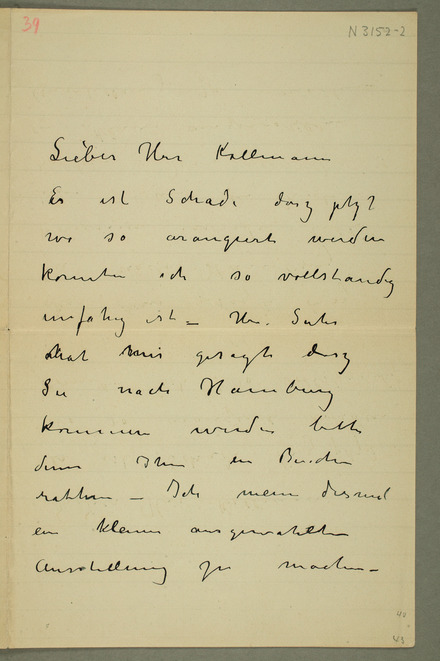 39
N 3152-2
Lieber Herr Kollmann
Es ist Schade dasz jetzt
wo so arangiert werden
konnte ich so vollstandig
unfahig ist – Hr.
hat mir gesagt dasz
Sie nach Hamburg
kommen werden bitte
denn Ihm
– Ich meine diesmal
ein kleine ausgewahlte
Ausstellung zu machen –
43